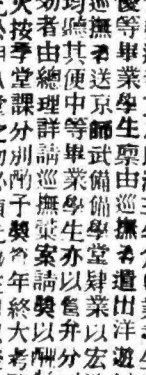 優等畢業學生稟由巡撫者遣出洋遊
巡撫者送京師武備學堂肄業以宏
均聽其便中等畢業學生亦以舊弁分
効者由總理詳請巡撫彙案請獎以酬
次按季堂課分別酌予獎　年終大考